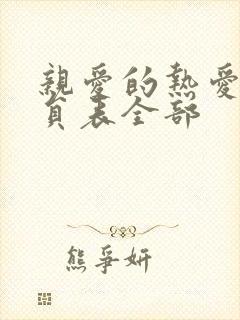 親愛的熱愛
員表全部
熊爭妍